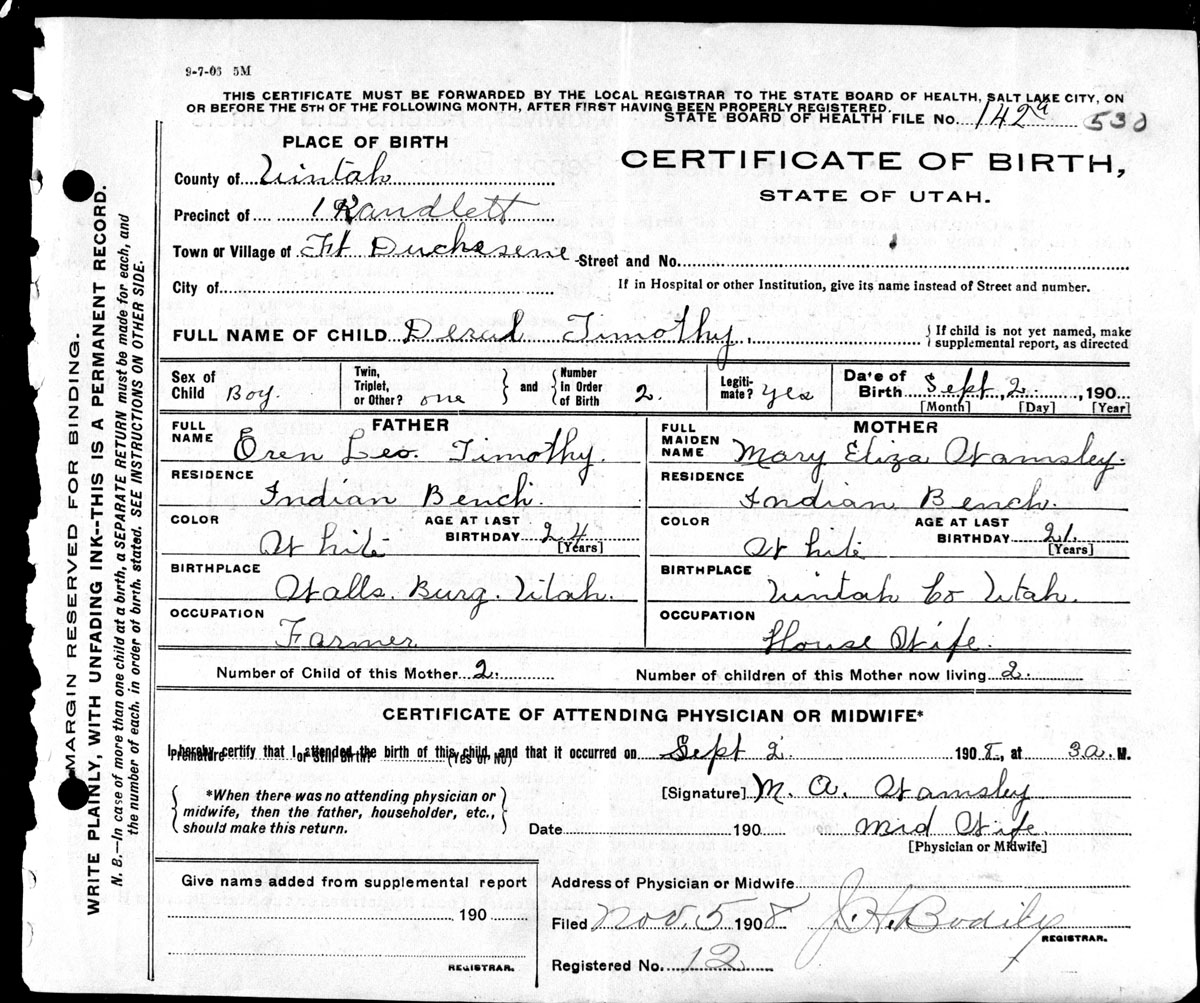 9-7-06 5M
THIS CERTIFICATE MUST BE FORWARDED BY THE LOCAL REGISTRAR TO THE STATE BOARD OF HEALTH, SALT LAKE CITY, ON
OR BEFORE THE 5TH OF THE FOLLOWING MONTH, AFTER FIRST HAVING BEEN PROPERLY REGISTERED.
STATE BOARD OF HEALTH FILE No. 142a 530
PLACE OF BIRTH
CERTIFICATE OF BIRTH,
STATE OF UTAH.
County of Uintah
Precinct of Randlett
Town or Village of Ft Duchesene Street and No.
City of
If in Hospital or other Institution, give its name instead of Street and number.
FULL NAME OF CHILD Timothy, { If child is not yet named, make supplemental report, as directed
Sex of Child Boy. Twin, Triplet, or Other? one and Number in Order of Birth 2. Legiti-mate? yes Date of Birth Sept, 2. , 190
[Month] [Day] [Year]
FATHER
MOTHER
FULL NAME Oren Leo. Timothy.
FULL MAIDEN NAME Mary Eliza Wamsley.
RESIDENCE Indian Bench.
RESIDENCE Indian Bench.
COLOR White AGE AT LAST BIRTHDAY 24 [Years]
COLOR White AGE AT LAST BIRTHDAY 21. [Years]
BIRTHPLACE Walls. Burg. Utah.
BIRTHPLACE Uintah Co Utah.
OCCUPATION Farmer
OCCUPATION House Wife.
Number of Child of this Mother 2. Number of children of this Mother now living 2.
CERTIFICATE OF ATTENDING PHYSICIAN OR MIDWIFE*
I hereby certify that I attended the birth of this child, and that it occurred on Sept 2. 1908, at 3a. M.
Premature or Still Birth? (Yes or No)
*When there was no attending physician or
midwife, then the father, householder, etc.,
should make this return.
[Signature] M. A. Wamsley
Date 190 Mid Wife.
[Physician or Midwife]
Give name added from supplemental report
190
REGISTRAR.
Address of Physician or Midwife
Filed Nov. 5 1908 J. H. Bodily
REGISTRAR.
Registered No. 12
MARGIN RESERVED FOR BINDING.
WRITE PLAINLY, WITH UNFADING INK--THIS IS A PERMANENT RECORD.
N. B.—In case of more than one child at a birth, a SEPARATE RETURN must be made for each, and
the number of each, in order of birth, stated. SEE INSTRUCTIONS ON OTHER SIDE.